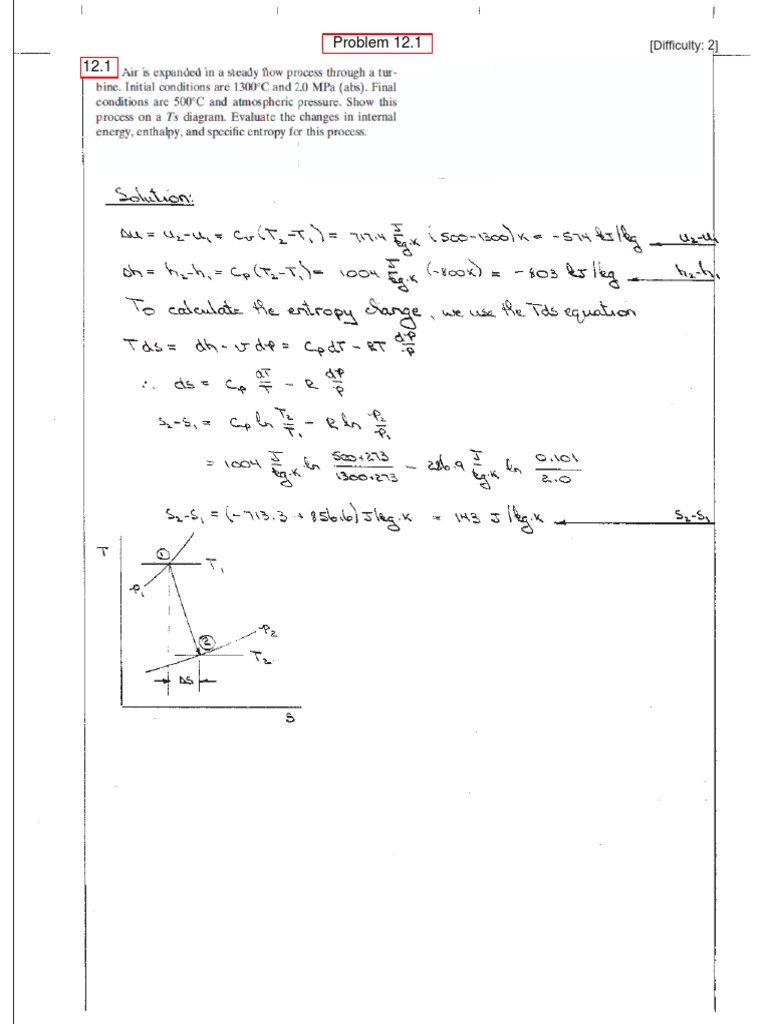 Problem 12.1
[Difficulty: 2]
12.1
Air is expanded in a steady flow process through a tur-
bine. Initial conditions are 1300°C and 2.0 MPa (abs). Final
conditions are 500°C and atmospheric pressure. Show this
process on a Ts diagram. Evaluate the changes in internal
energy, enthalpy, and specific entropy for this process.
Solution:
Δu = u₂-u₁ = Cv(T₂-T₁) = 717.4 J/kg.K (500-1300)K = -574 kJ/kg u₂-u₁
dh = h₂-h₁ = Cp(T₂-T₁) = 1004 J/kg.K (-800K) = -803 kJ/kg h₂-h₁
To calculate the entropy change, we use the Tds equation
Tds = dh - v dp = Cp dT - RT dp/p
∴ ds = Cp dT/T - R dp/p
s₂-s₁ = Cp ln T₂/T₁ - R ln p₂/p₁
= 1004 J/kg.K ln (500+273)/(1300+273) - 286.9 J/kg.K ln 0.101/2.0
s₂-s₁ = (-713.3 + 856.6) J/kg.K = 143 J/kg.K s₂-s₁
T
①
T₁
p₁
p₂
②
T₂
Δs
s